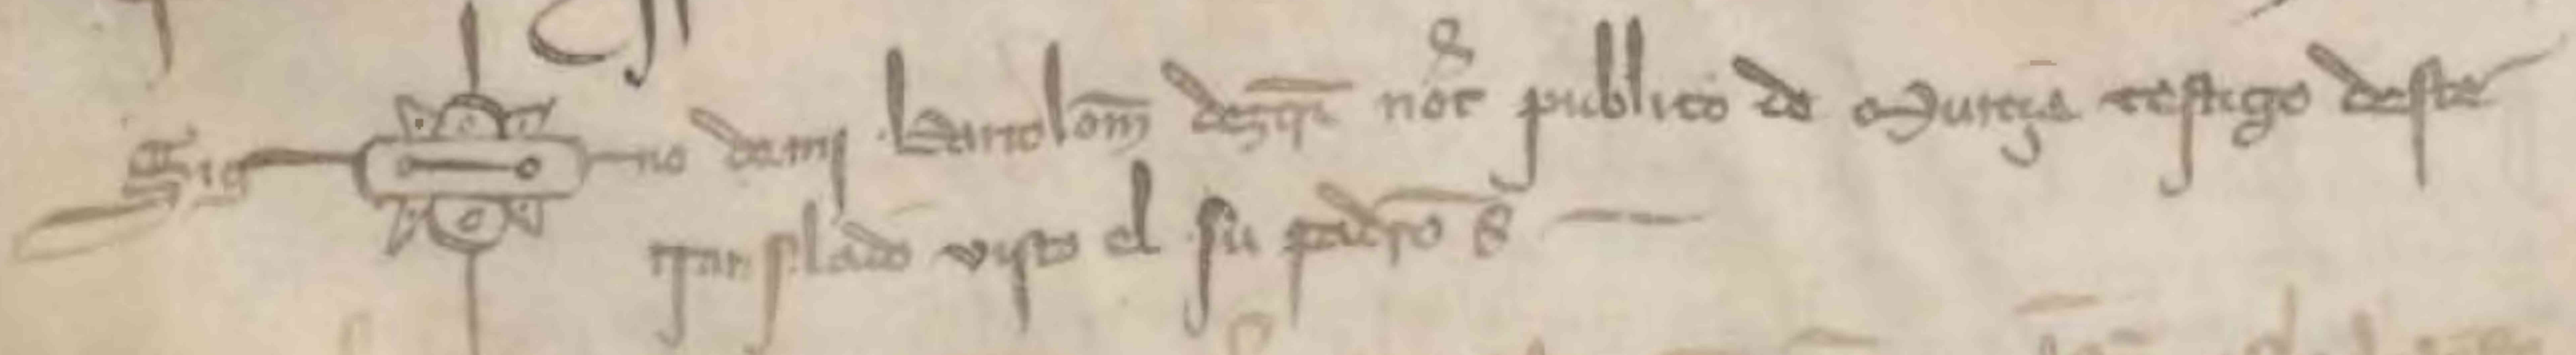 Sig no de mj Bartolom not publico de Murçia testigo deste
translado visto el su padro